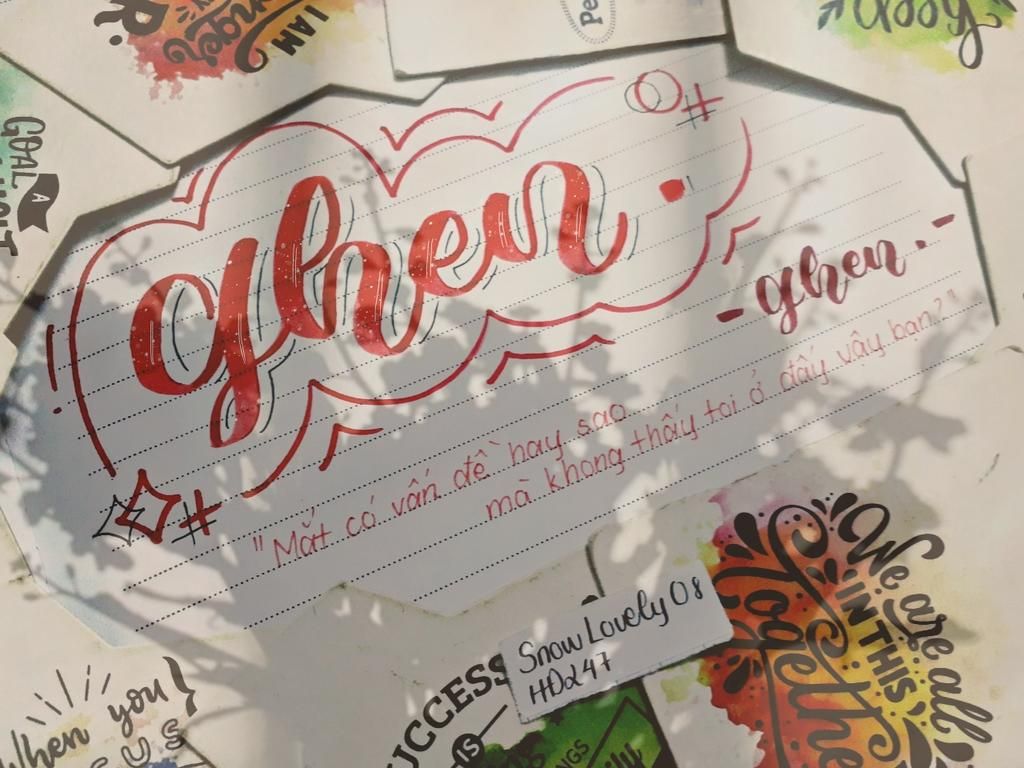 I AM
R.
Pe
GOAL
A
ghen
#
- ghen. -
#
"Mắt có vấn đề hay sao
mà không thấy tôi ở đấy vậy bạn?"
Snow Lovely 08
HD247
We are all
IN THIS
Togethe
UCCESS
IS
NGS
When you